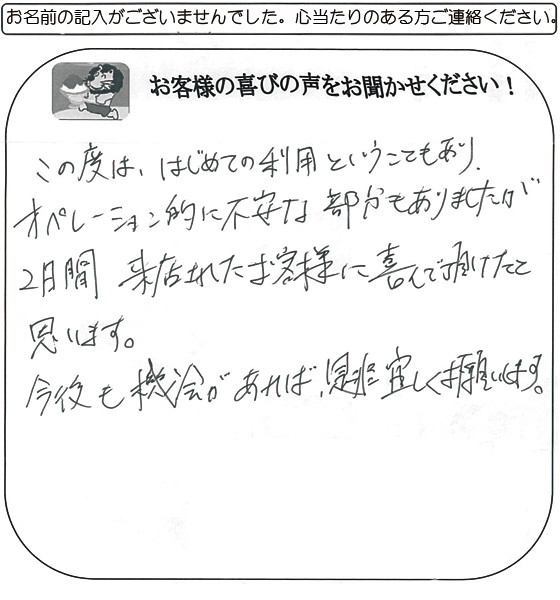 お名前の記入がございませんでした。心当たりのある方ご連絡ください。
お客様の喜びの声をお聞かせください！
この度は、はじめての利用ということもあり、
オペレーション的に不安な部分もありましたが
2日間 来店されたお客様に喜んで頂けたと
思います。
今後も機会があれば、是非宜しくお願いします。